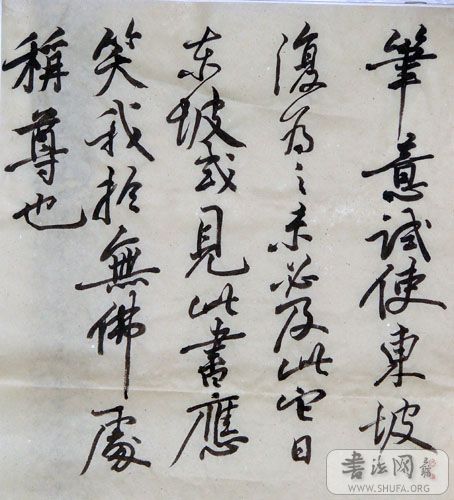 筆意試使東坡
復為之未必及此它日
东坡或見此書應
笑我於無佛處
稱尊也
書法网
WWW.SHUFA.ORG